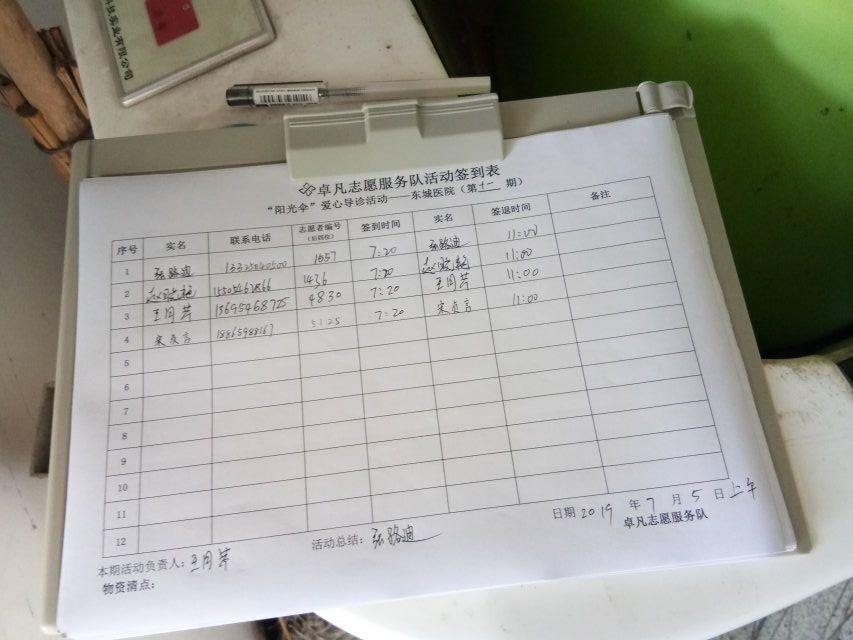 实业有限公司
卓凡志愿服务队活动签到表
“阳光伞”爱心导诊活动——东城医院(第十一期)
序号 实名 联系电话 志愿者编号(后四位) 签到时间 实名 签退时间 备注
1 张路迪 13325040500 1557 7:20 张路迪 11:00
2 15505462866 1436 7:20 11:00
3 王同芹 13695468725 4830 7:20 王同芹 11:00
4 宋贞言 18865988167 5125 7:20 宋贞言 11:00
5
6
7
8
9
10
11
12
日期 2019 年 7 月 5 日 上午
卓凡志愿服务队
本期活动负责人:王同芹 活动总结:张路迪
物资清点: